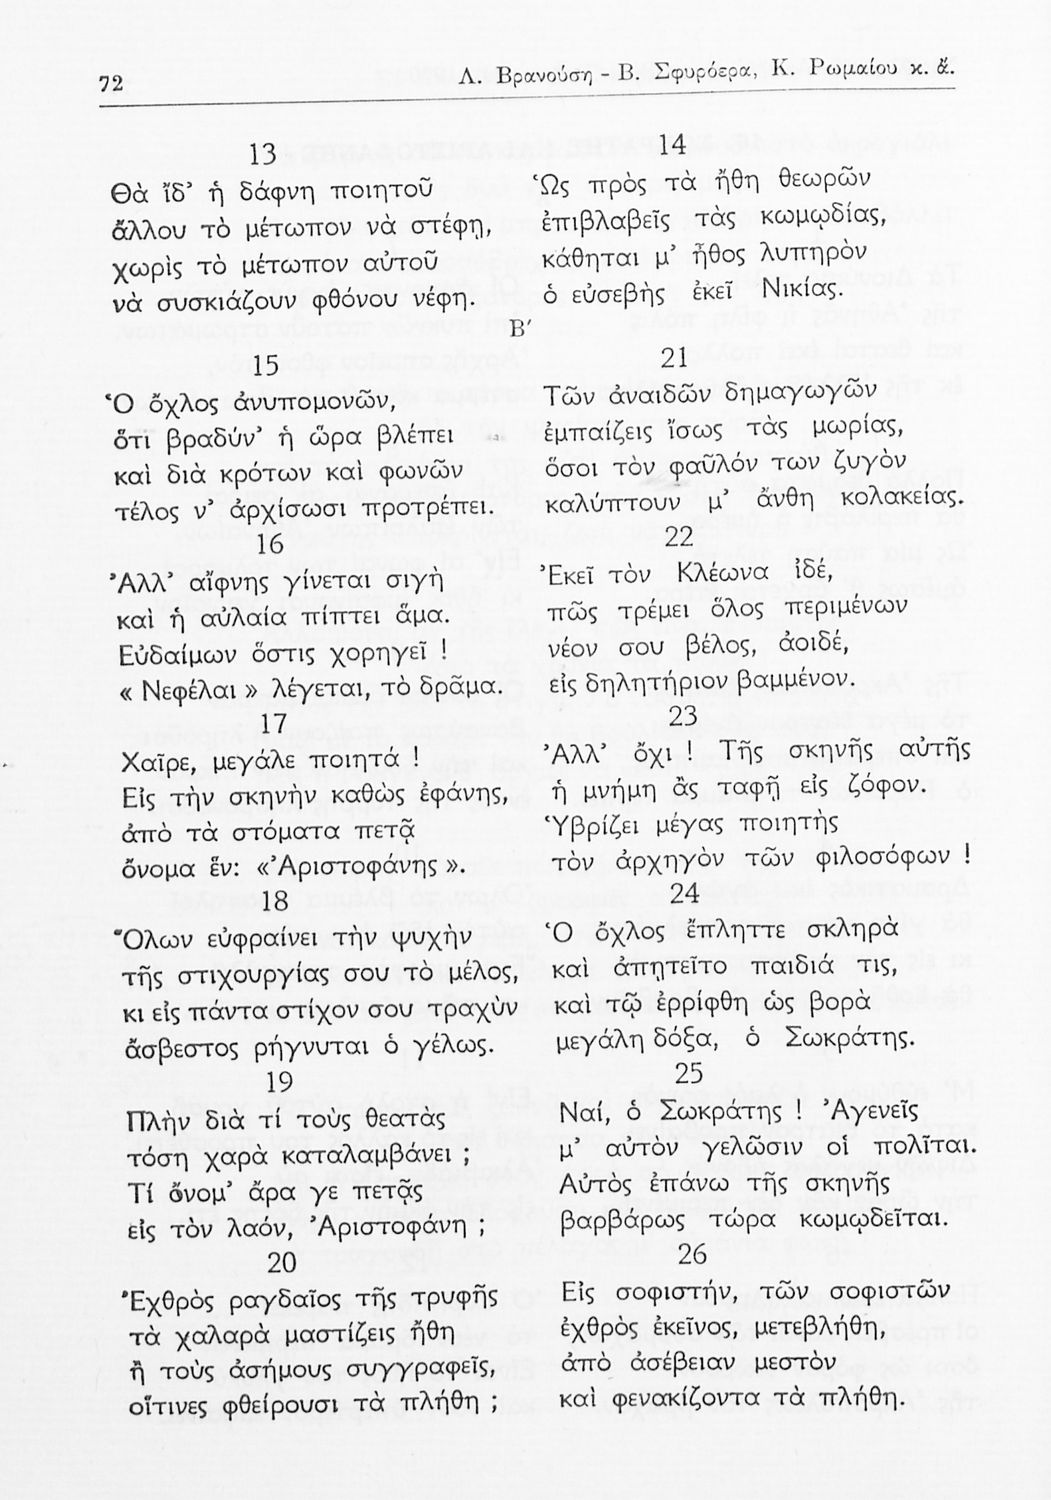 72
Λ. Βρανούση - Β. Σφυρόερα, Κ. Ρωμαίου κ. ἄ.
13
Θὰ ἴδ᾽ ἡ δάφνη ποιητοῦ
ἄλλου τὸ μέτωπον νὰ στέφῃ,
χωρὶς τὸ μέτωπον αὐτοῦ
νὰ συσκιάζουν φθόνου νέφη.
14
Ὡς πρὸς τὰ ἤθη θεωρῶν
ἐπιβλαβεῖς τὰς κωμῳδίας,
κάθηται μ᾽ ἦθος λυπηρὸν
ὁ εὐσεβὴς ἐκεῖ Νικίας.
Β′
15
Ὁ ὄχλος ἀνυπομονῶν,
ὅτι βραδύν᾽ ἡ ὥρα βλέπει
καὶ διὰ κρότων καὶ φωνῶν
τέλος ν᾽ ἀρχίσωσι προτρέπει.
16
Ἀλλ᾽ αἴφνης γίνεται σιγὴ
καὶ ἡ αὐλαία πίπτει ἅμα.
Εὐδαίμων ὅστις χορηγεῖ !
« Νεφέλαι » λέγεται, τὸ δρᾶμα.
17
Χαῖρε, μεγάλε ποιητά !
Εἰς τὴν σκηνὴν καθὼς ἐφάνης,
ἀπὸ τὰ στόματα πετᾷ
ὄνομα ἕν: «Ἀριστοφάνης ».
18
Ὅλων εὐφραίνει τὴν ψυχὴν
τῆς στιχουργίας σου τὸ μέλος,
κι εἰς πάντα στίχον σου τραχὺν
ἄσβεστος ρήγνυται ὁ γέλως.
19
Πλὴν διὰ τί τοὺς θεατὰς
τόση χαρὰ καταλαμβάνει ;
Τί ὄνομ᾽ ἄρα γε πετᾷς
εἰς τὸν λαόν, Ἀριστοφάνη ;
20
Ἐχθρὸς ραγδαῖος τῆς τρυφῆς
τὰ χαλαρὰ μαστίζεις ἤθη
ἢ τοὺς ἀσήμους συγγραφεῖς,
οἵτινες φθείρουσι τὰ πλήθη ;
21
Τῶν ἀναιδῶν δημαγωγῶν
ἐμπαίζεις ἴσως τὰς μωρίας,
ὅσοι τὸν φαῦλόν των ζυγὸν
καλύπτουν μ᾽ ἄνθη κολακείας.
22
Ἐκεῖ τὸν Κλέωνα ἰδέ,
πῶς τρέμει ὅλος περιμένων
νέον σου βέλος, ἀοιδέ,
εἰς δηλητήριον βαμμένον.
23
Ἀλλ᾽ ὄχι ! Τῆς σκηνῆς αὐτῆς
ἡ μνήμη ἂς ταφῇ εἰς ζόφον.
Ὑβρίζει μέγας ποιητὴς
τὸν ἀρχηγὸν τῶν φιλοσόφων !
24
Ὁ ὄχλος ἔπληττε σκληρὰ
καὶ ἀπῃτεῖτο παιδιά τις,
καὶ τῷ ἐρρίφθη ὡς βορὰ
μεγάλη δόξα, ὁ Σωκράτης.
25
Ναί, ὁ Σωκράτης ! Ἀγενεῖς
μ᾽ αὐτὸν γελῶσιν οἱ πολῖται.
Αὐτὸς ἐπάνω τῆς σκηνῆς
βαρβάρως τώρα κωμῳδεῖται.
26
Εἰς σοφιστήν, τῶν σοφιστῶν
ἐχθρὸς ἐκεῖνος, μετεβλήθη,
ἀπὸ ἀσέβειαν μεστὸν
καὶ φενακίζοντα τὰ πλήθη.